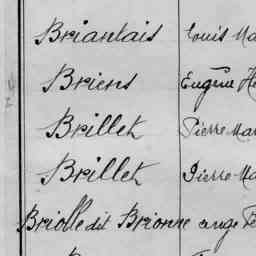 Briantais Louis Ma
Briens Eugène He
Brillet Pierre Mar
Brillet Pierre-Ma
Briolle dit Brionne ange Fé